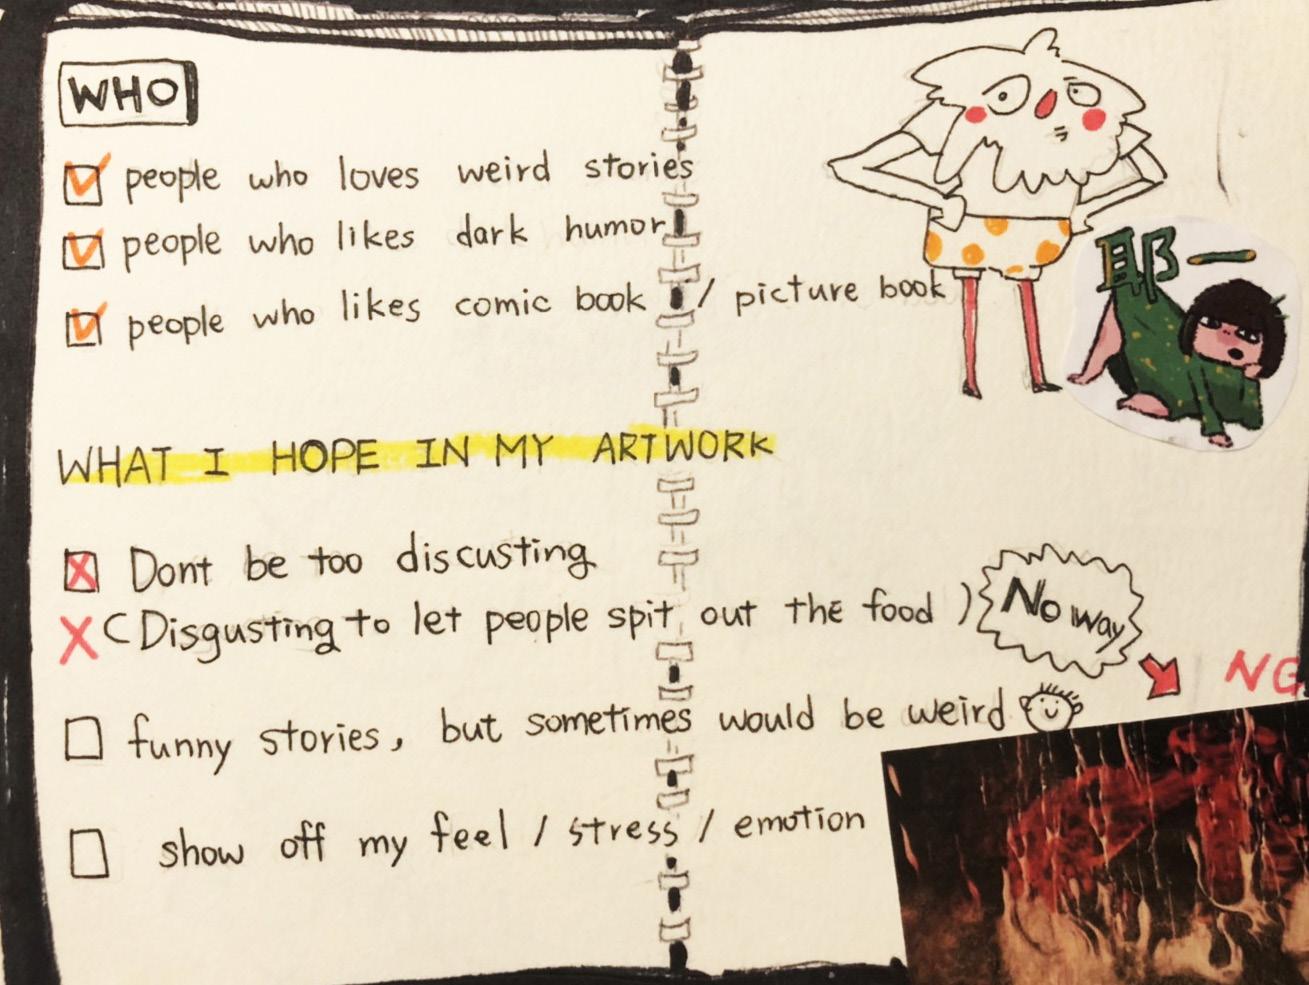 WHO
people who loves weird stories
people who likes dark humor
people who likes comic book / picture book
耶一
WHAT I HOPE IN MY ARTWORK
Dont be too discusting
X (Disgusting to let people spit out the food )
No way
NG
funny stories, but sometimes would be weird
show off my feel / stress / emotion